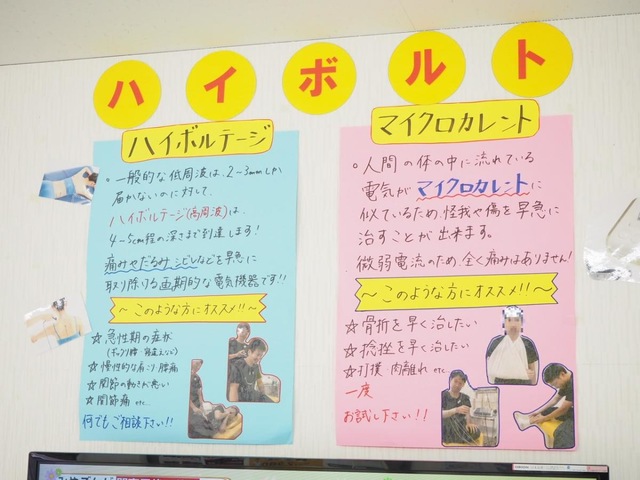 ハイボルト
ハイボルテージ
。一般的な低周波は、2~3mmしか
届かないのに対して、
ハイボルテージ(高周波)は、
4~5cm程の深さまで到達します!
痛みやだるみ、シビレなどを早急に
取り除ける画期的な電気機器です!!
~このような方にオススメ!!~
☆急性期の症状
(ギックリ腰・寝違えなど)
☆慢性的な肩こり、腰痛
☆関節の動きが悪い
☆関節痛 etc
何でもご相談下さい!!
マイクロカレント
。人間の体の中に流れている
電気がマイクロカレントに
似ているため、怪我や傷を早急に
治すことが出来ます。
微弱電流のため、全く痛みはありません!
~このような方にオススメ!!~
☆骨折を早く治したい
☆捻挫を早く治したい
☆打撲・肉離れ etc
一度
お試し下さい!!